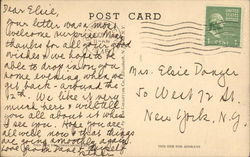 Dear Elsie,
Your letter was a most
welcome surprise. Many
thanks for all your good
wishes & we hope to be
able to drop into your
home evening when we
get back - around the
We like it very
much here & will tell
you all about it when
we see you. Hope you are
all well now & that things
are going smoothly again.
POST CARD
Mrs. Elsie
50 West 72 St.
New York, N.Y.